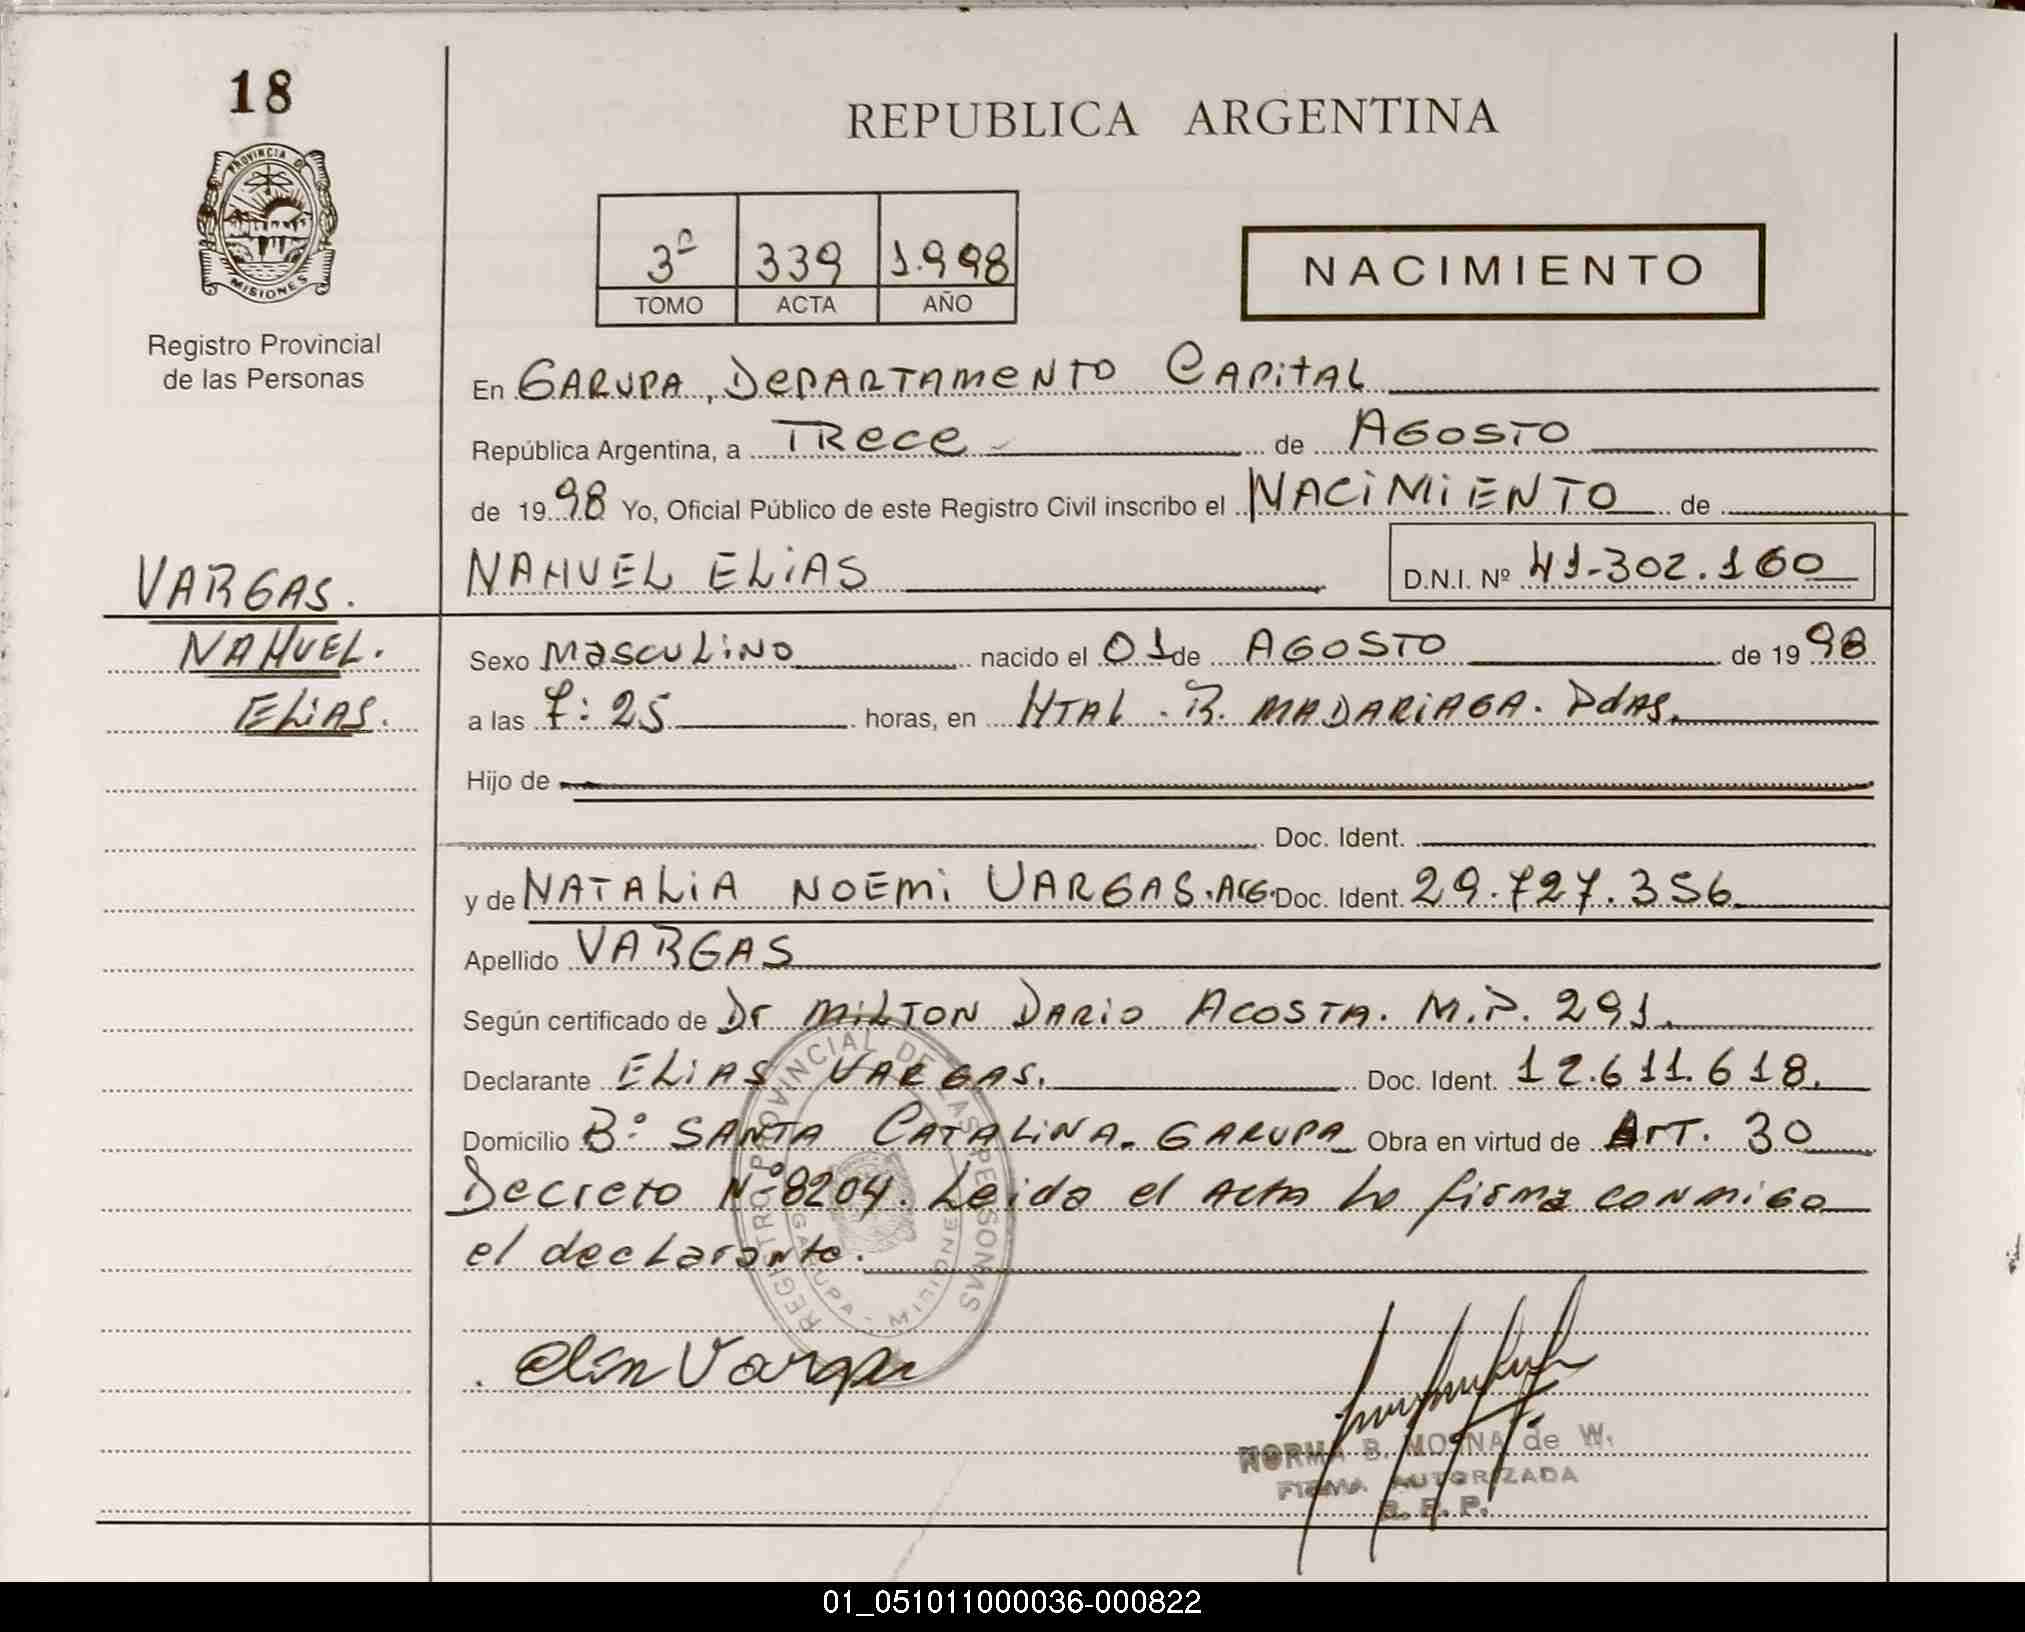 18
REPUBLICA ARGENTINA
PROVINCIA D
MISIONES
Registro Provincial
de las Personas
3º 339 1.998
TOMO ACTA AÑO
NACIMIENTO
En GARUPA, DEPARTAMENTO CAPITAL
República Argentina, a TRECE de AGOSTO
de 1998 Yo, Oficial Público de este Registro Civil inscribo el NACIMIENTO de
NAHUEL ELIAS D.N.I. Nº 41-302.160
VARGAS.
NAHUEL.
ELIAS.
Sexo MASCULINO nacido el 01 de AGOSTO de 1998
a las 7:25 horas, en HTAL. R. MADARIAGA. PdAS.
Hijo de
Doc. Ident.
y de NATALIA NOEMI VARGAS.ARG. Doc. Ident. 29.727.356
Apellido VARGAS
Según certificado de Dr MILTON DARIO ACOSTA. M.P. 291.
Declarante ELIAS VARGAS. Doc. Ident. 12.611.618.
Domicilio Bº SANTA CATALINA. GARUPA Obra en virtud de ArT. 30
Decreto Nº8204. Leida el Acta Lo firma conmigo
el declarante.
REGISTRO PROVINCIAL DE LAS PERSONAS
GARUPA
Elias Vargas
NORMA B. MOSNA de W.
FIRMA AUTORIZADA
01_051011000036-000822